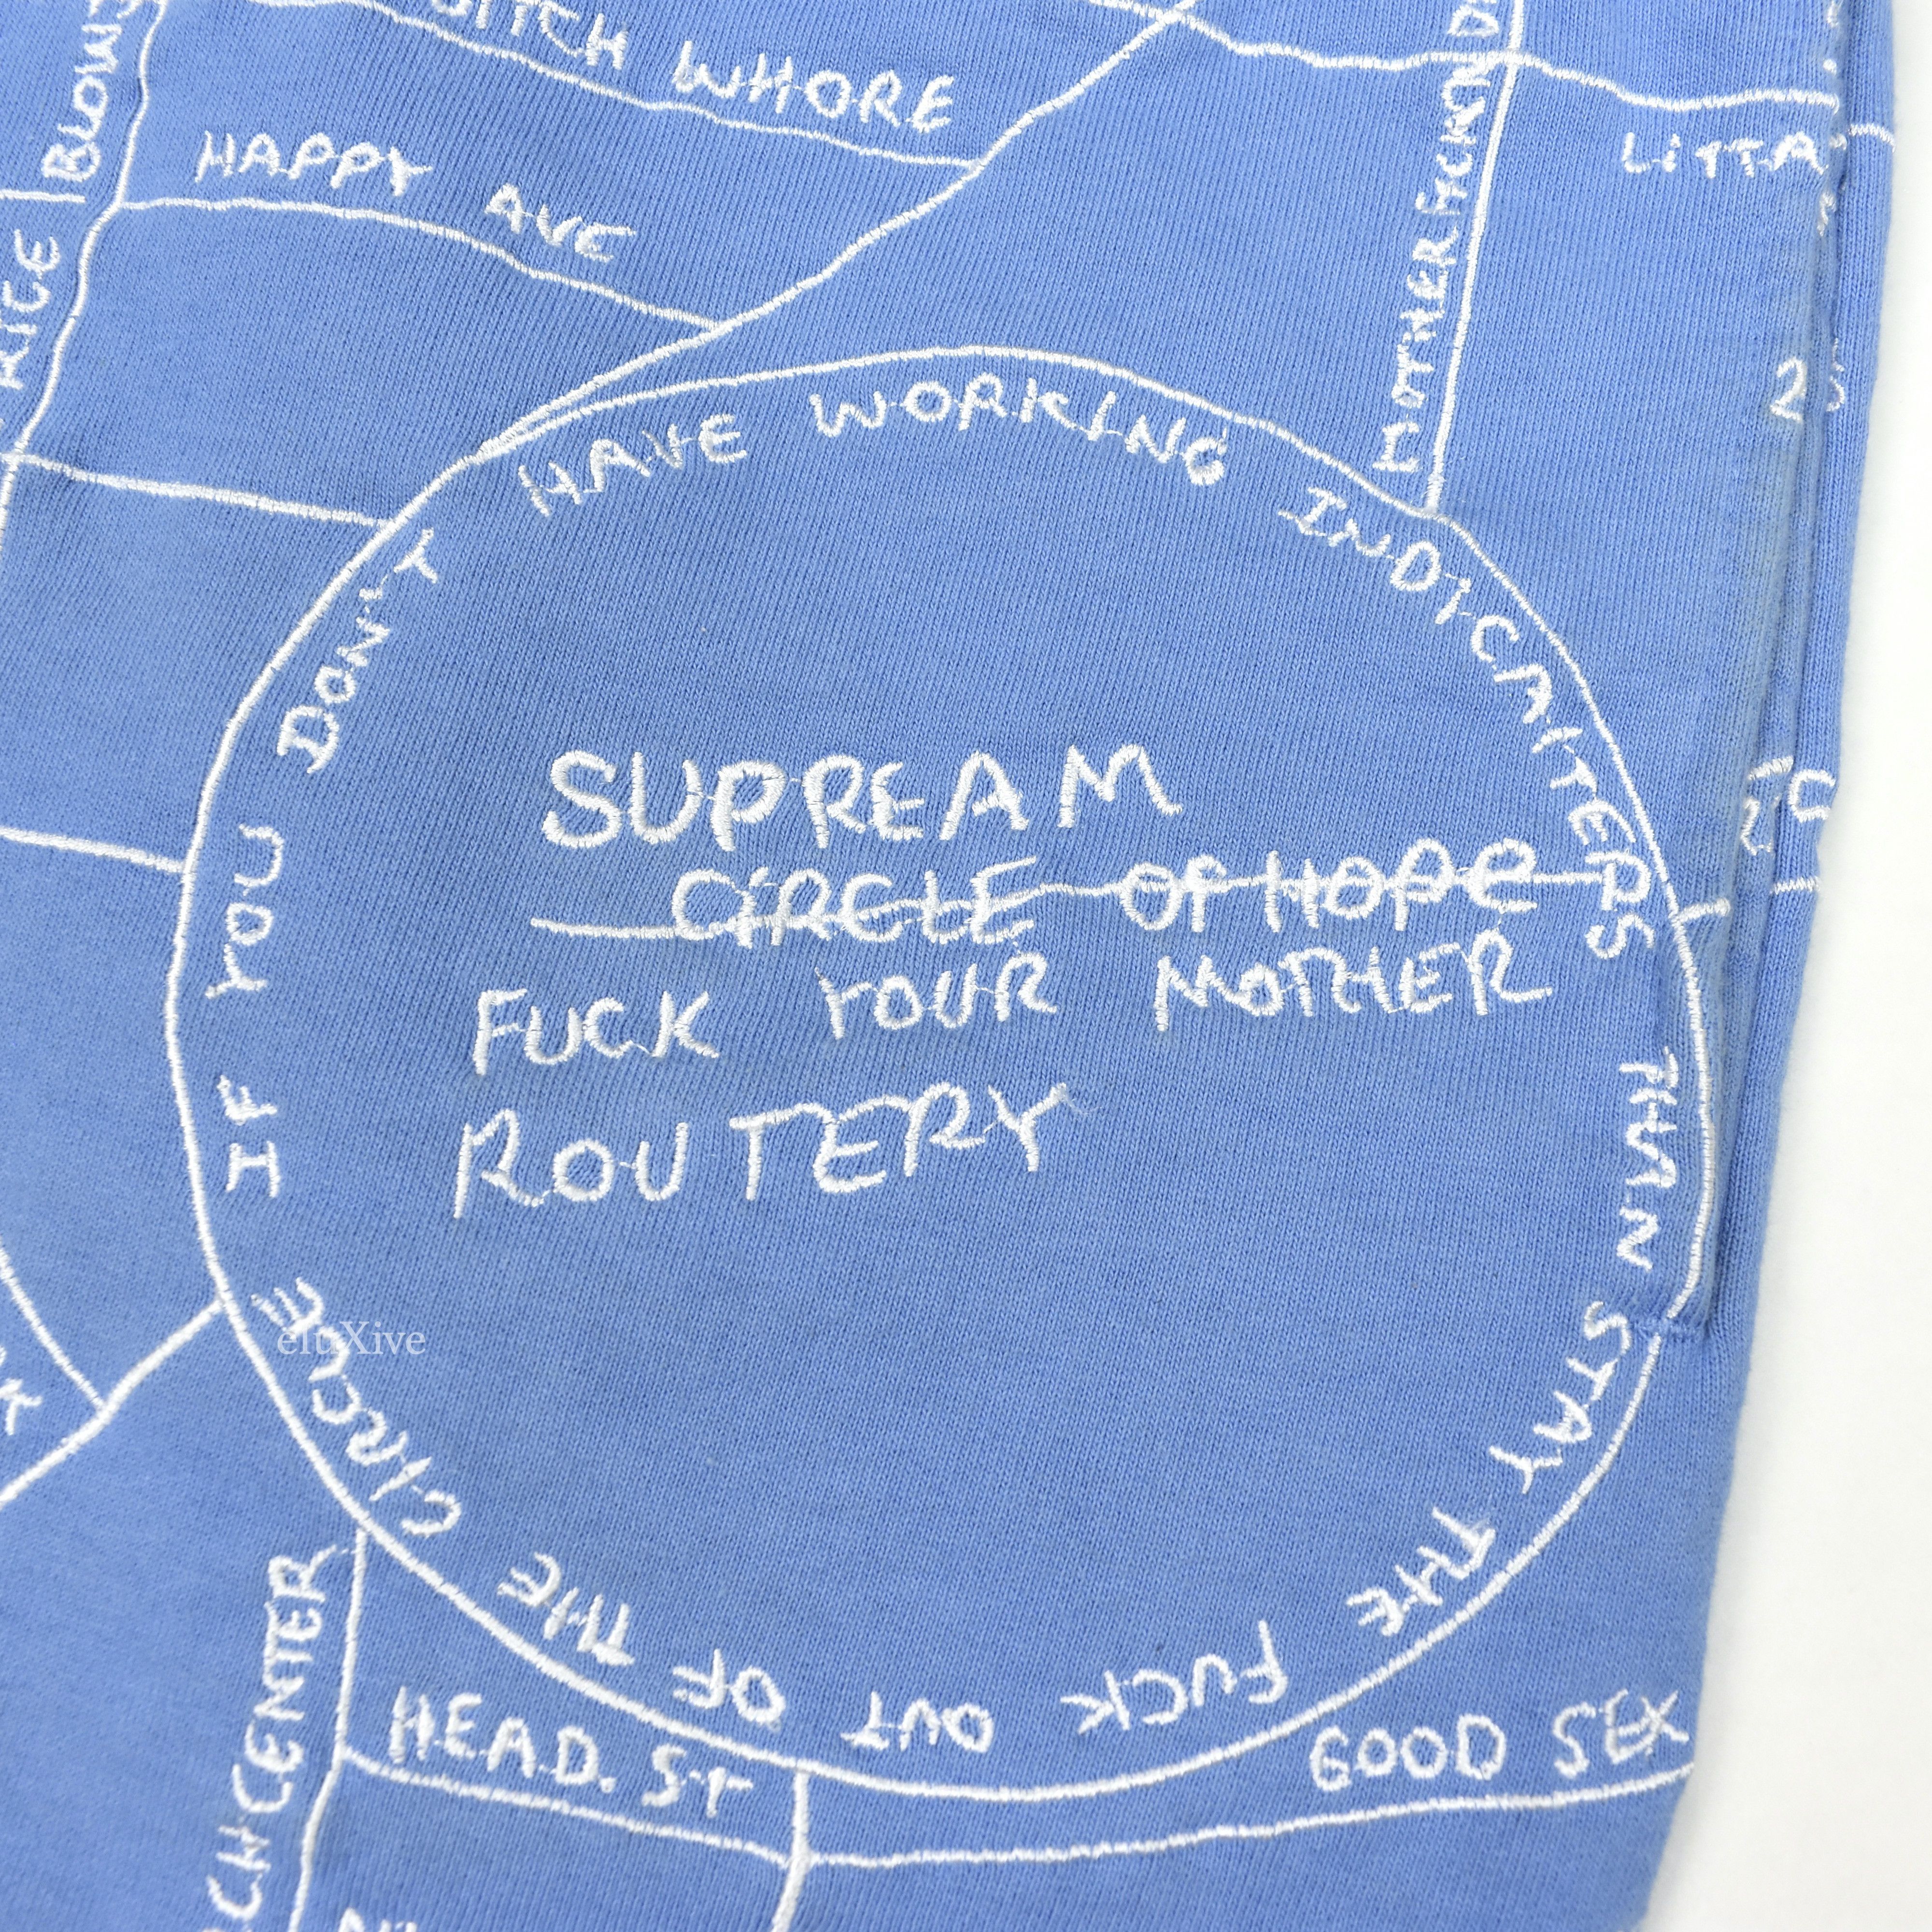 BLOWS
BITCH WHORE
HAPPY AVE
RICE
MOTHERFUCKN
LITTA
25
IF YOU DON'T HAVE WORKING INDICAITERS THAN STAY THE FUCK OUT OF THE CIRCLE
SUPREAM
CIRCLE OF HOPE
FUCK YOUR MOTHER
ROUTERY
eluXive
CH CENTER
HEAD. ST
GOOD SEX